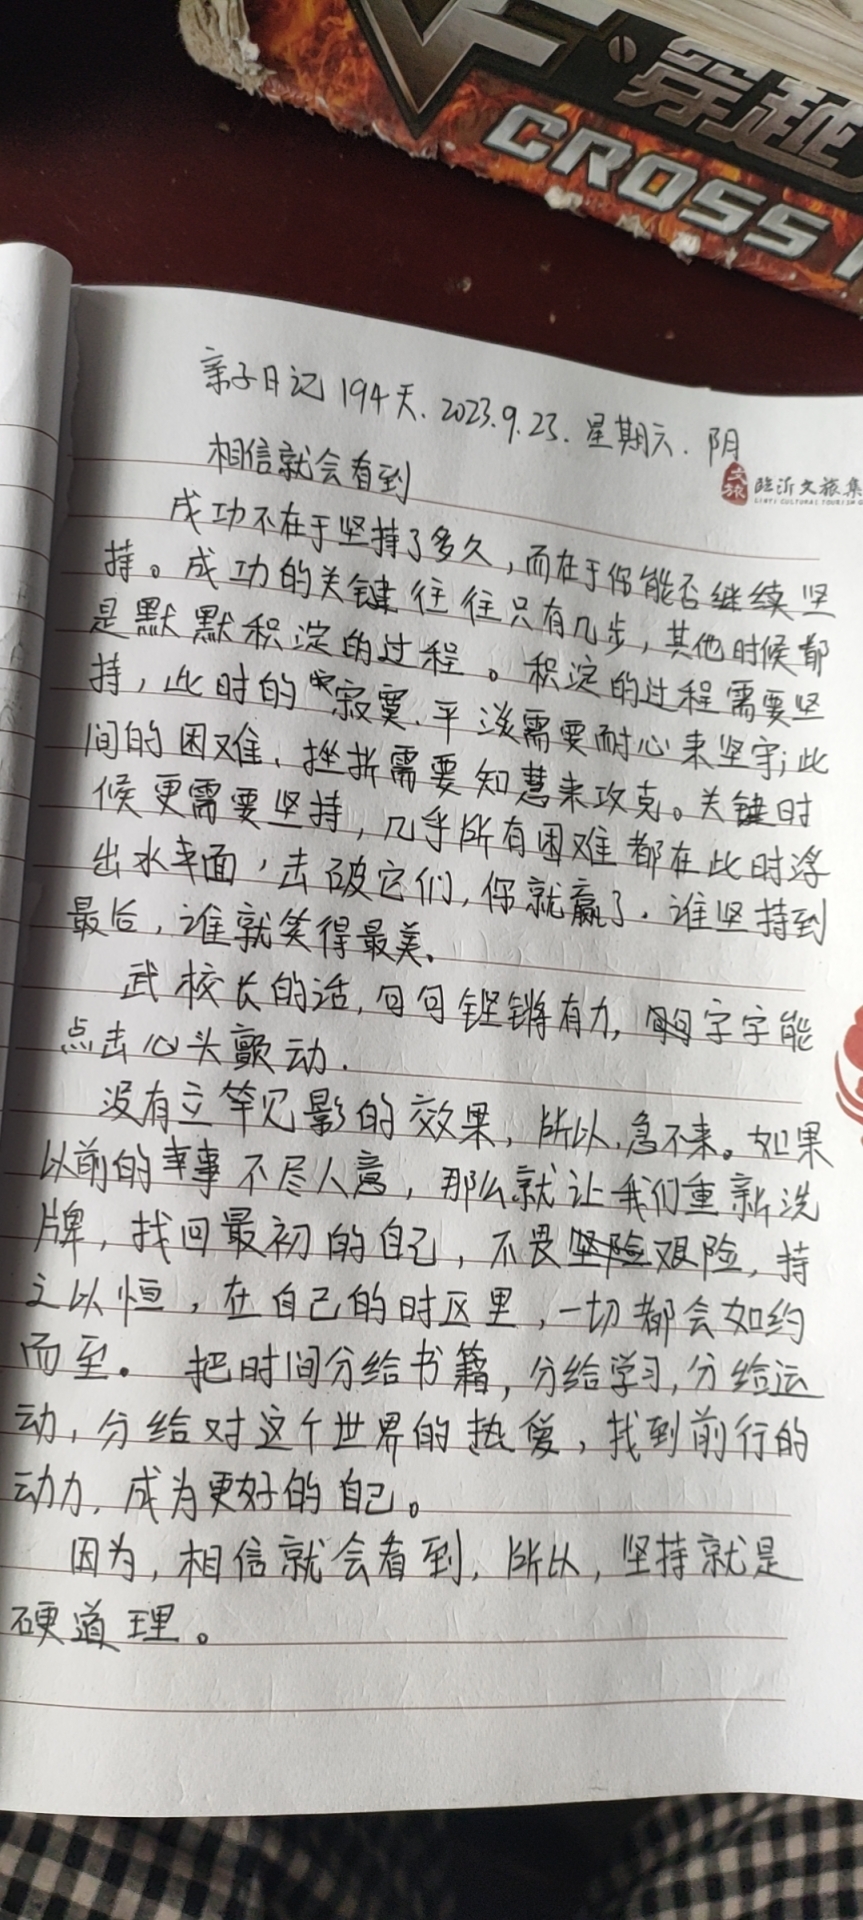 穿越
CROSS
亲子日记 194天. 2023.9.23. 星期六. 阴
相信就会看到
文旅 临沂文旅集
LINYI CULTURAL TOURISM G
成功不在于坚持了多久，而在于你能否继续坚
持。成功的关键往往只有几步，其他时候都
是默默积淀的过程。积淀的过程需要坚
持，此时的寂寞、平淡需要耐心来坚守；此
间的困难、挫折需要知慧来攻克。关键时
候更需要坚持，几乎所有困难都在此时浮
出水平面，击破它们，你就赢了. 谁坚持到
最后，谁就笑得最美.
武校长的话，句句铿锵有力，字字能
点击心头颤动.
没有立竿见影的效果，所以，急不来。如果
以前的事不尽人意，那么就让我们重新洗
牌，找回最初的自己，不畏艰险，持
之以恒，在自己的时区里，一切都会如约
而至. 把时间分给书籍，分给学习，分给运
动，分给对这个世界的热爱，找到前行的
动力，成为更好的自己。
因为，相信就会看到，所以，坚持就是
硬道理。